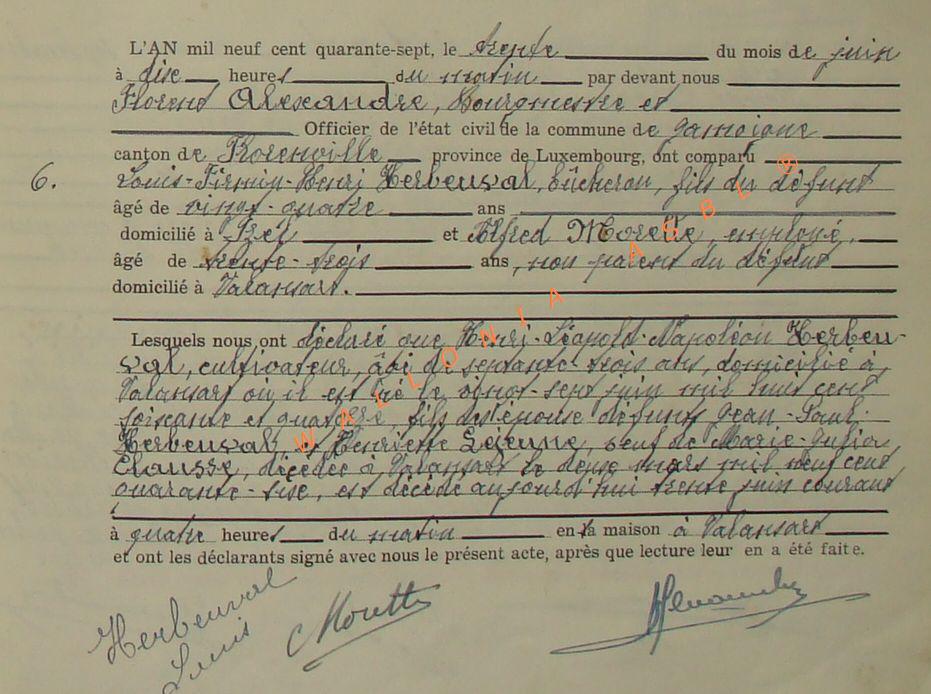 L'AN mil neuf cent quarante-sept, le trente du mois de juin
à dix heures du matin par devant nous
Florent Alexandre, Bourgmestre et
Officier de l'état civil de la commune de Jamoigne
canton de Florenville province de Luxembourg, ont comparu
6. Louis-Firmin-Henri Herbeuval, bûcheron, fils du défunt
âgé de vingt-quatre ans
domicilié à Izel et Alfred Morette, employé,
âgé de trente-trois ans, non parent du défunt
domicilié à Valansart.
Lesquels nous ont déclaré que Henri-Léopold-Napoléon Herbeu-
val, cultivateur, âgé de septante-trois ans, domicilié à
Valansart où il est né le vingt-sept juin mil huit cent
soixante et quatorze fils des époux défunts Jean-Paul
Herbeuval et Henriette Lejeune, veuf de Marie-Julia
Clausse, décédée à Valansart le douze mars mil neuf cent
quarante-six, est décédé aujourd'hui trente juin courant
à quatre heures du matin en la maison à Valansart
et ont les déclarants signé avec nous le présent acte, après que lecture leur en a été faite.
Herbeuval
Louis
WALLONIA ASBL ®